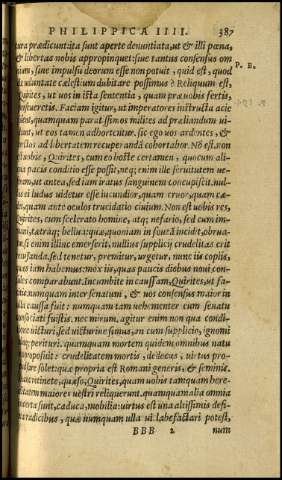 PHILIPPICA IIII. 387
tura prædicuntita sunt aperte denuntiata, ut & illi pœna,
& libertas nobis appropinquet: siue tantus consensus om
nium, sine impulsu deorum esse non potuit, quid est, quod
de uoluntate cælestium dubitare possimus? Reliquum est,
Quirites, ut uos in ista sententia, quam præ uobis fertis,
perseueretis. Faciam igitur, ut imperatores instructa acie
solent, quamquam paratissimos milites ad præliandum ui-
deant, ut eos tamen adhortentur. sic ego uos ardentes, &
ad libertatem recuperandã cohortabor. Nõ est, nõ est
uobis, Quirites, cum eo hoste certamen, quocum ali-
pacis conditio esse possit, neq; enim ille seruitutem ue-
ut antea, sed iam iratus sanguinem concupiscit. nul-
ei ludus uidetur esse iucundior, quam cruor, quam cæ-
quam ante oculos trucidatio ciuium. Non est uobis res,
Quirites, cum scelerato homine, atq; nefario, sed cum im-
tætraq; bellua: quæ, quoniam in foueã incidit, obrua-
si enim illinc emerserit, nullius supplicij crudelitas erit
sed tenetur, premitur, urgetur, nunc iis copiis,
quas iam habemus: mox iis, quas paucis diebus noui con-
comparabunt. Incumbite in causam, Quirites, ut fa-
nunquam inter senatum, & uos consensus maior in
causa fuit: nunquam tam uehementer cum senatu
consociati fuistis. nec mirum, agitur enim non qua condi-
uicturi, sed uicturine simus, an cum supplicio, ignomi
perituri. quamquam mortem quidem omnibus natu
proposuit: crudelitatem mortis, & dedecus, uirtus pro-
solet: quæ propria est Romani generis, & seminis.
retinete, quæso, Quirites, quam uobis tamquam here-
maiores uestri reliquerunt. quamquam alia omnia
sunt, caduca, mobilia: uirtus est una altissimis defi-
radicibus, quæ numquam ulla ui labefactari potest,
BBB 2 num
P. B.